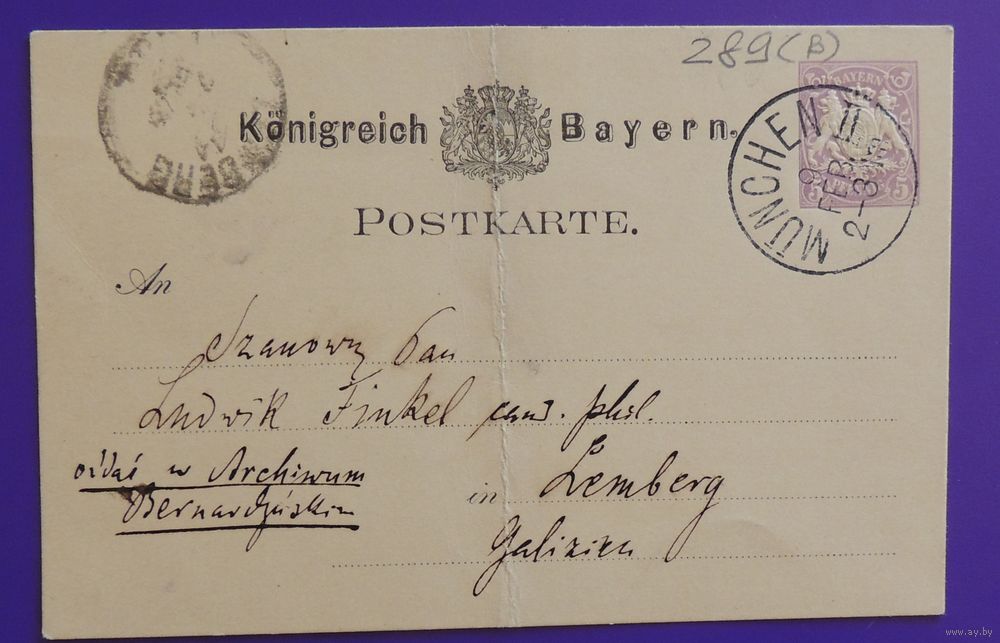 289(B)
Königreich Bayern.
BAYERN
5 5
MÜNCHEN II
9
FEB
2-3
BERG
POSTKARTE.
An
Szanowny Pan
Ludwik Finkel cand. phil.
oddać w Archiwum
Bernardyńskim
in Lemberg
Galizien
www.ay.by